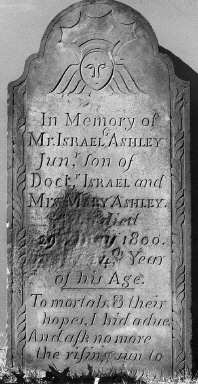 In Memory of
Mr. ISRAEL ASHLEY
Jun.r son of
Doct.r ISRAEL and
Mrs MARY ASHLEY.
died
1800.
Year
of his Age.
To mortals, & their
hopes, I bid adue,
And ask no more
the rising sun to